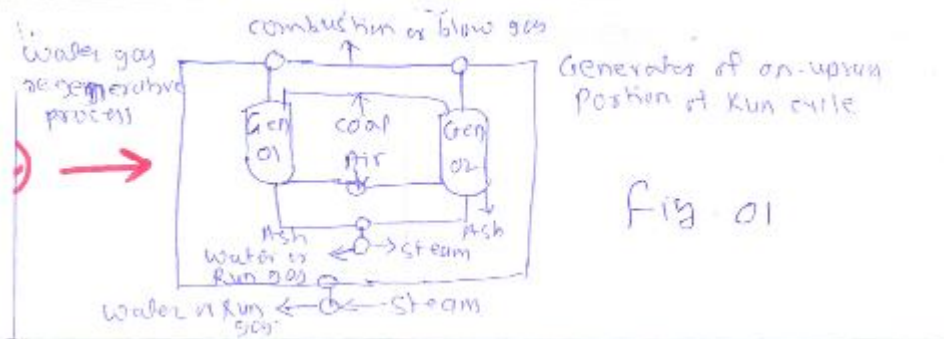 combustion or blow gas
Water gas
regenerative
process
Generator of on-uprun
Portion of Run cycle
Gen
01
coal
Air
Gen
02
Fig. 01
Ash
Ash
Water or
Run gas
steam
Water or Run
gas
steam